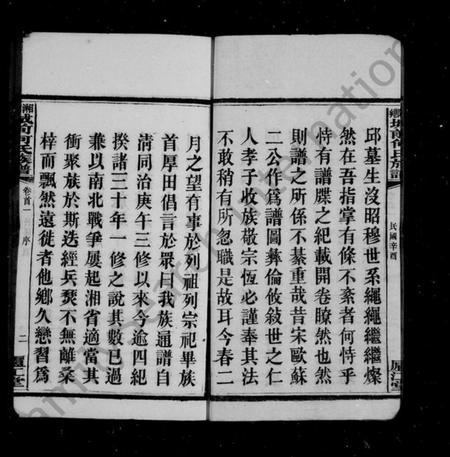 邱墓生沒昭穆世系繩繩繼繼燦
然在吾指掌有條不紊者何恃乎
恃有譜牒之紀載開卷瞭然也然
則譜之所係不綦重哉昔宋歐蘇
二公作爲譜圖彝倫攸敘世之仁
人孝子收族敬宗恆必謹奉其法
不敢稍有所忽職是故耳今春二
民國辛酉
月之望有事於列祖列宗祀畢族
首厚田倡言於眾曰我族通譜自
清同治庚午三修以來今逾四紀
揆諸三十年一修之說其數已過
兼以南北戰爭屢起湘省適當其
衝聚族於斯迭經兵燹不無離桑
梓而飄然遠徙者他鄉久戀習爲
卷首一
序
二